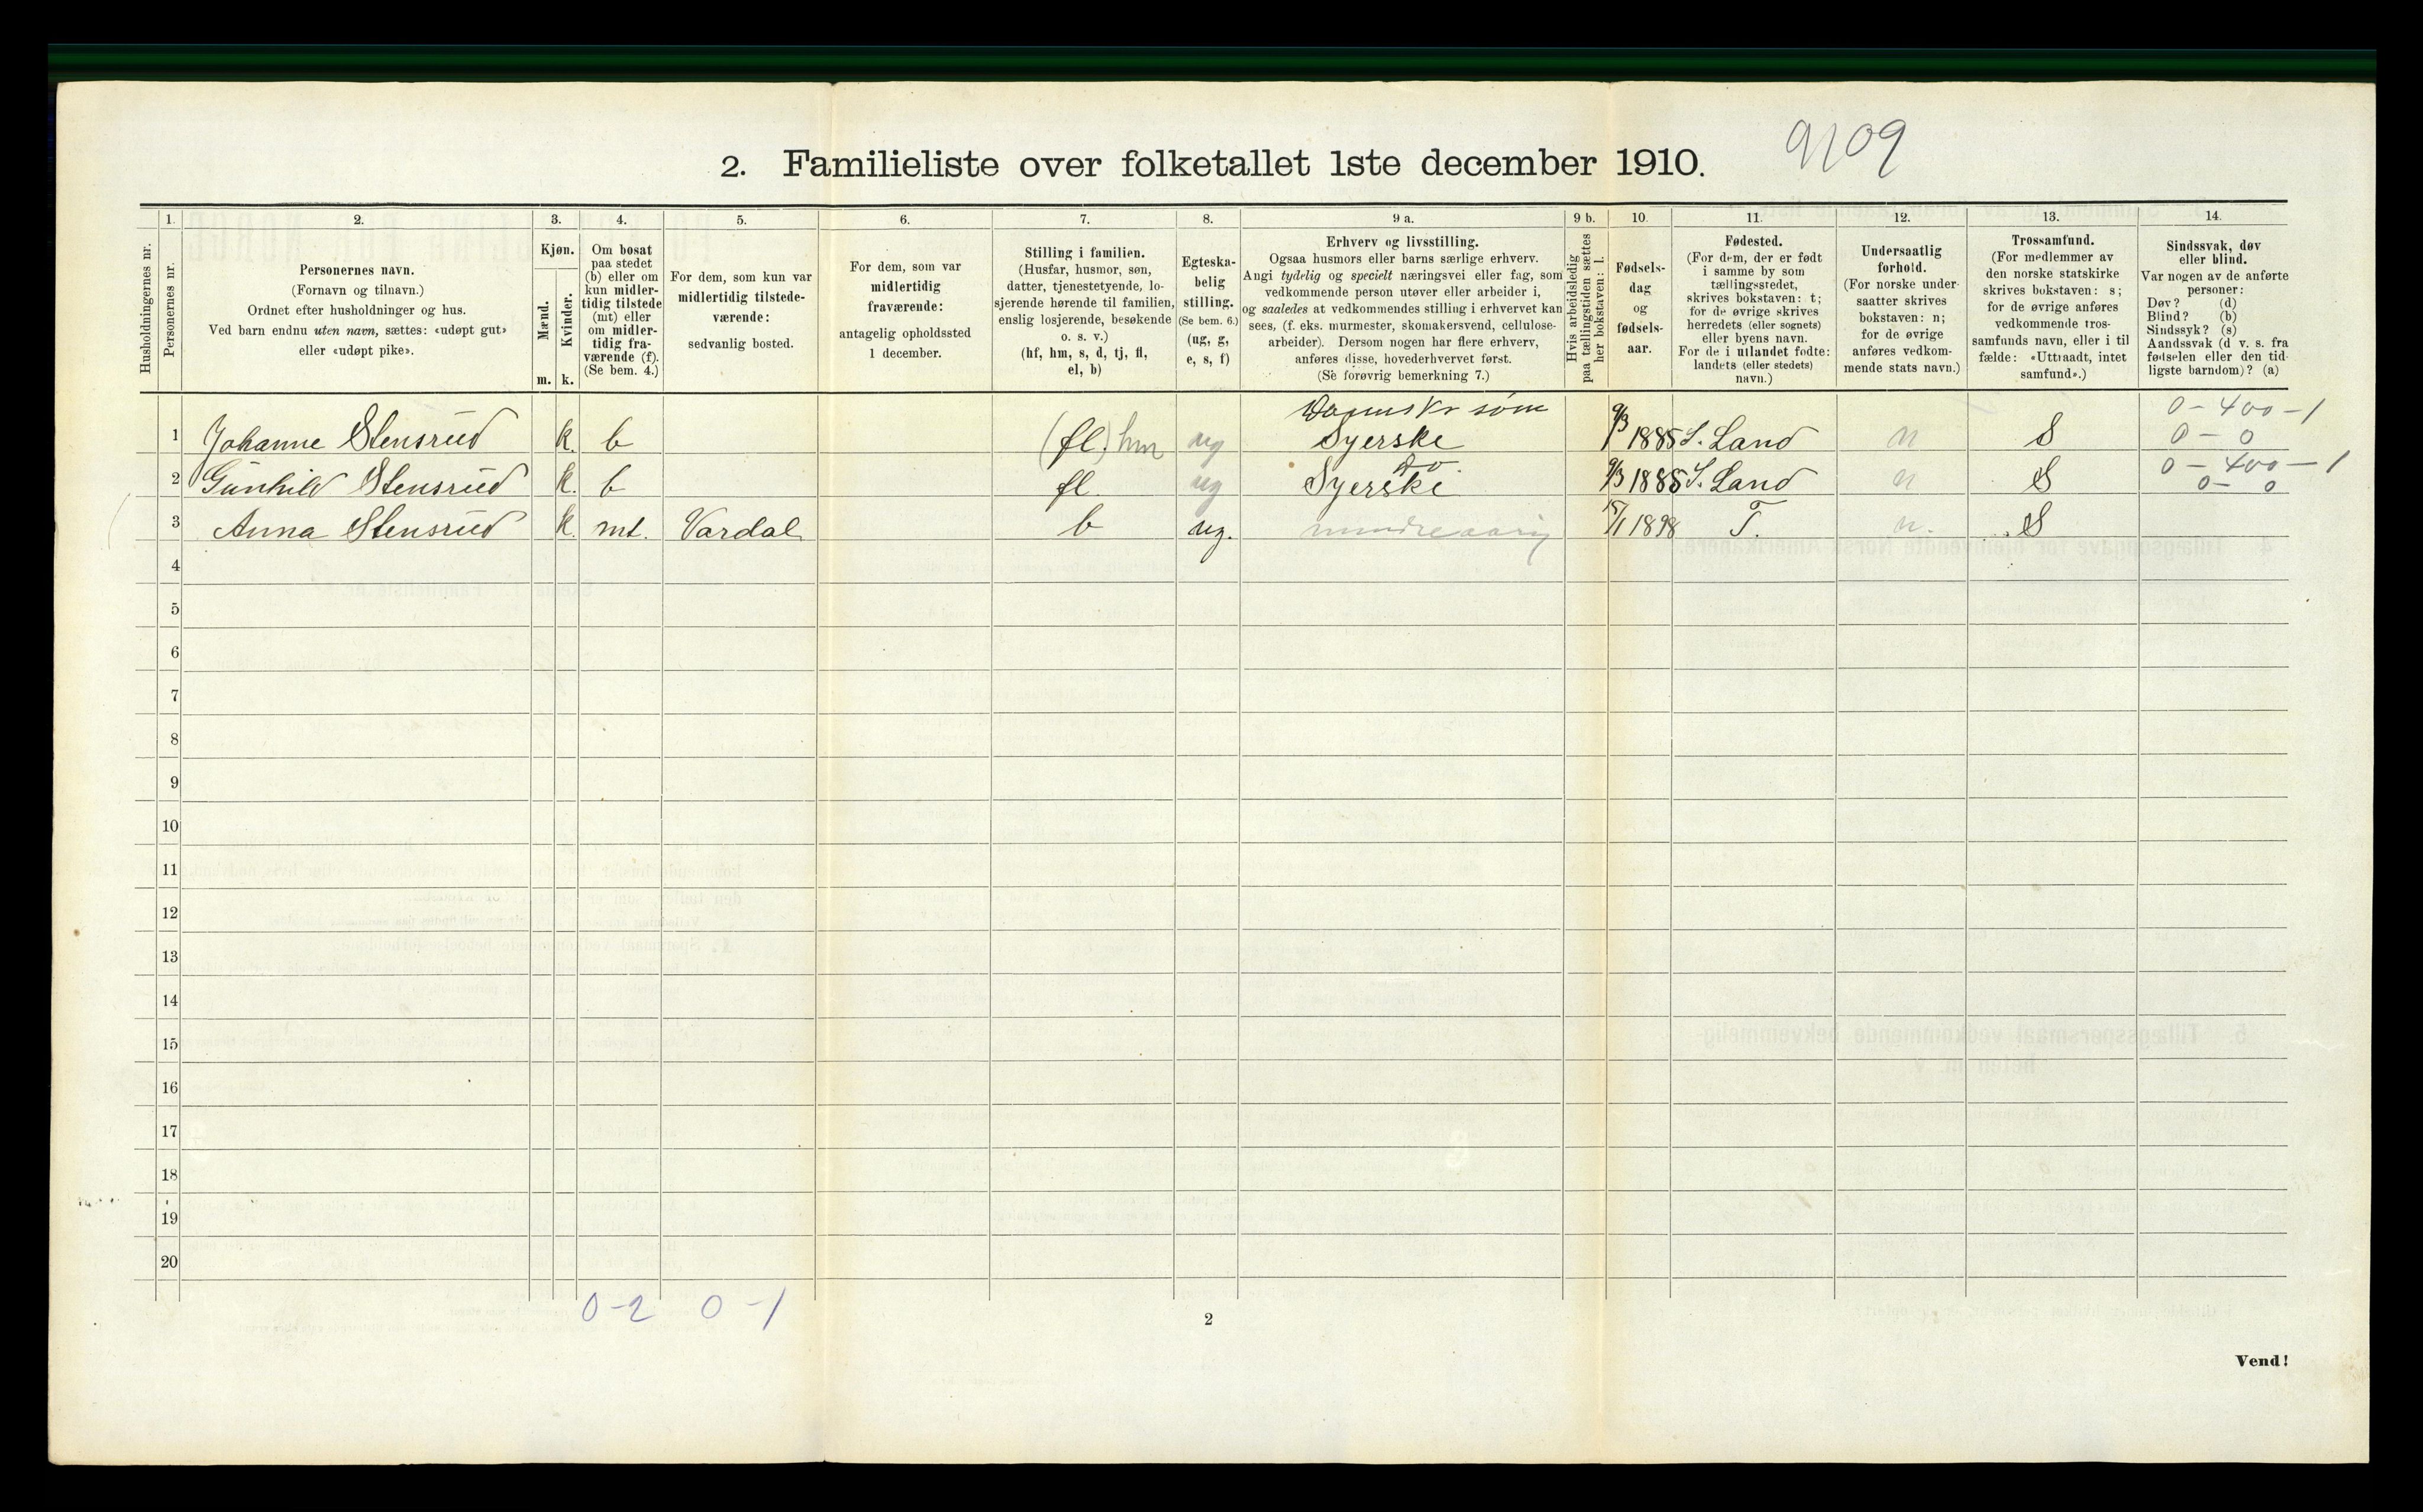 2. Familieliste over folketallet 1ste december 1910.
9109
1. 2. 3. 4. 5. 6. 7. 8. 9 a. 9 b. 10. 11. 12. 13. 14.
Husholdningernes nr.
Personernes nr.
Personernes navn.
(Fornavn og tilnavn.)
Ordnet efter husholdninger og hus.
Ved barn endnu uten navn, sættes: «udøpt gut»
eller «udøpt pike».
Kjøn.
Mænd.
Kvinder.
m. k.
Om bosat
paa stedet
(b) eller om
kun midler-
tidig tilstede
(mt) eller
om midler-
tidig fra-
værende (f).
(Se bem. 4.)
For dem, som kun var
midlertidig tilstede-
værende:
sedvanlig bosted.
For dem, som var
midlertidig
fraværende:
antagelig opholdssted
1 december.
Stilling i familien.
(Husfar, husmor, søn,
datter, tjenestetyende, lo-
sjerende hørende til familien,
enslig losjerende, besøkende
o. s. v.)
(hf, hm, s, d, tj, fl,
el, b)
Egteska-
belig
stilling.
(Se bem. 6.)
(ug, g,
e, s, f)
Erhverv og livsstilling.
Ogsaa husmors eller barns særlige erhverv.
Angi tydelig og specielt næringsvei eller fag, som
vedkommende person utøver eller arbeider i,
og saaledes at vedkommendes stilling i erhvervet kan
sees, (f. eks. murmester, skomakersvend, cellulose-
arbeider). Dersom nogen har flere erhverv,
anføres disse, hovederhvervet først.
(Se forøvrig bemerkning 7.)
Hvis arbeidsledig
paa tællingstiden sættes
her bokstaven: l.
Fødsels-
dag
og
fødsels-
aar.
Fødested.
(For dem, der er født
i samme by som
tællingsstedet,
skrives bokstaven: t;
for de øvrige skrives
herredets (eller sognets)
eller byens navn.
For de i utlandet fødte:
landets (eller stedets)
navn.)
Undersaatlig
forhold.
(For norske under-
saatter skrives
bokstaven: n;
for de øvrige
anføres vedkom-
mende stats navn.)
Trossamfund.
(For medlemmer av
den norske statskirke
skrives bokstaven: s;
for de øvrige anføres
vedkommende tros-
samfunds navn, eller i til
fælde: «Uttraadt, intet
samfund».)
Sindssvak, døv
eller blind.
Var nogen av de anførte
personer:
Døv? (d)
Blind? (b)
Sindssyk? (s)
Aandssvak (d v. s. fra
fødselen eller den tid-
ligste barndom)? (a)
søm 0-400-1
1 Johanne Stensrud k. b (fl.) hm ug Syerske 9/3 1885 S. Land n S 0-0
do. 0-400-1
2 Gunhild Stensrud k. b fl. ug Syerske 9/3 1885 S. Land n S 0-0
3 Anna Stensrud k. mt. Vardal b ug. mindreaarig 1898 T. n. S
4
5
6
7
8
9
10
11
12
13
14
15
16
17
18
19
20
0-2 0-1
2
Vend!